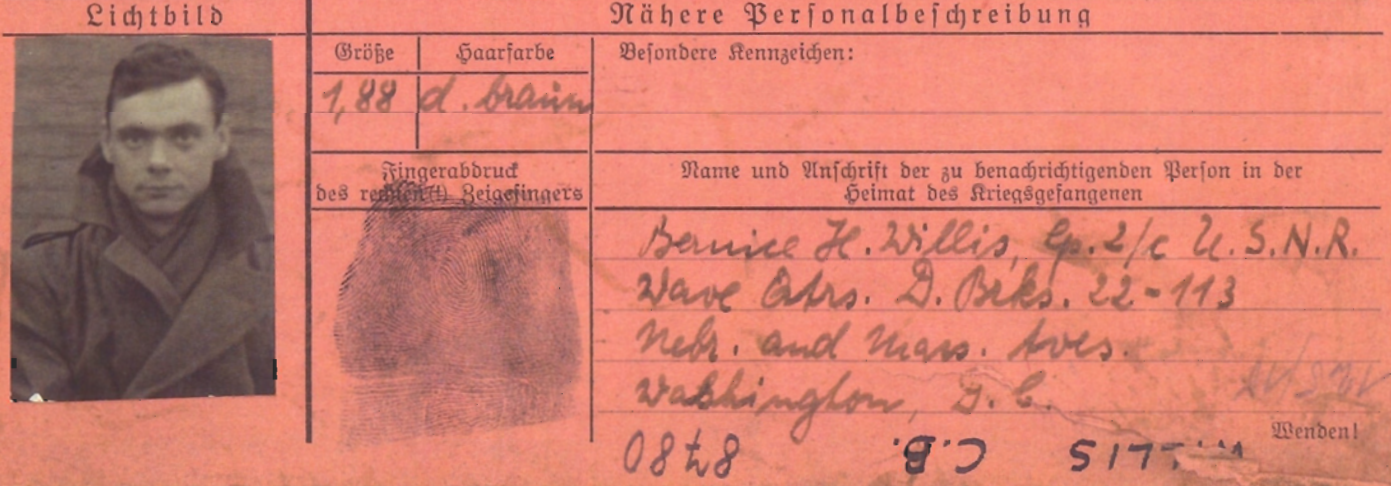 Lichtbild
Nähere Personalbeschreibung
Größe
Haarfarbe
Besondere Kennzeichen:
1,88
d. braun
Fingerabdruck
des rechten (!) Zeigefingers
Name und Anschrift der zu benachrichtigenden Person in der
Heimat des Kriegsgefangenen
Bernice H. Willis, Sp. 2/c U.S.N.R.
Wave Qtrs. D. Brks. 22-113
Nebr. and Mass. Aves.
Washington, D.C.
Wenden!
WILLIS C.B. 8780